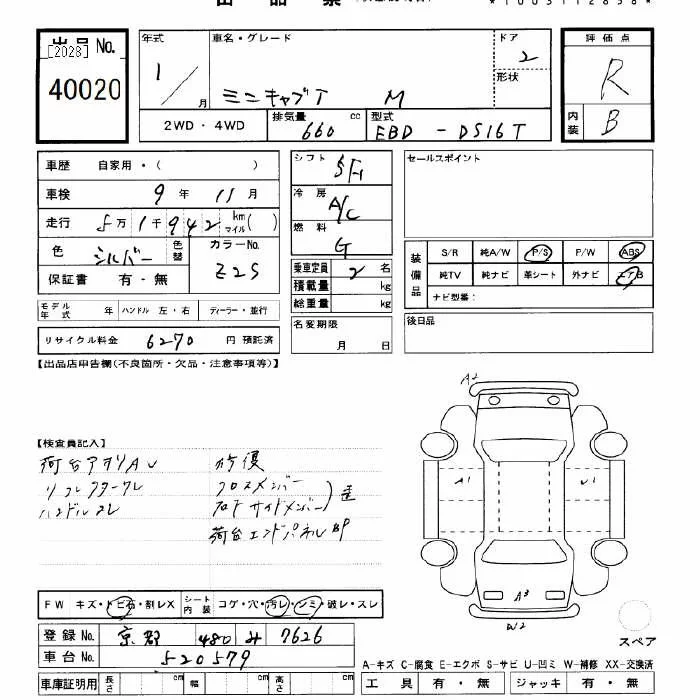 *1003112838*
出品No.
[2028]
40020
年式
1/
月
車名・グレード
ミニキャブT M
ドア
2
形状
評価点
R
内装
B
2WD・4WD
排気量 cc
660
型式
EBD - DS16T
車歴 自家用・( )
車検 9年 11月
走行 5万1千942 km マイル( )
色 シルバー 色替
カラーNo.
Z2S
保証書 有・無
シフト
5F
冷房
A/C
燃料
G
乗車定員 2 名
積載量 kg
総重量 kg
セールスポイント
装備品
S/R 純A/W P/S P/W ABS
純TV 純ナビ 革シート 外ナビ エアB
ナビ型番:
モデル年式 年 ハンドル 左・右 ディーラー・並行
リサイクル料金 6270 円 預託済
名変期限
月 日
後日品
【出品店申告欄(不良箇所・欠品・注意事項等)】
A2
【検査員記入】
荷台アオリAU
ハンドルスレ
修復
クロスメンバー
フロントサイドメンバー
荷台エンドパネルBP
A1
U1
A3
W2
FW キズ・トビ石・割レX シート内装 コゲ・穴・汚レ・シミ・破レ・スレ
登録No. 京都 480 み 7626
車台No. 520579
スペア
A-キズ C-腐食 E-エクボ S-サビ U-凹ミ W-補修 XX-交換済
車庫証明用 長さ cm 幅 cm 高さ cm
工具 有・無 ジャッキ 有・無